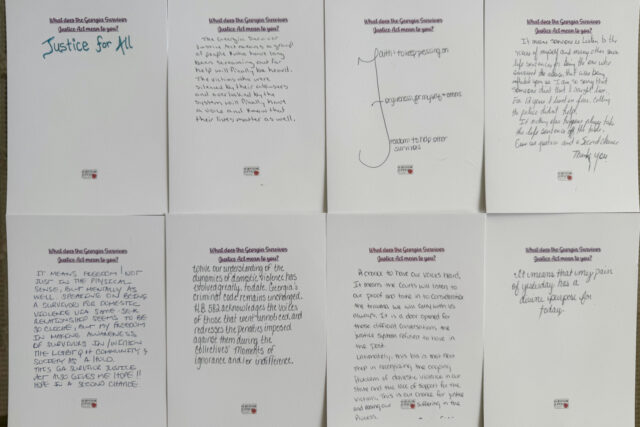 What does the Georgia Survivors
Justice Act mean to you?
Justice for All
What does the Georgia Survivors
Justice Act mean to you?
The Georgia Survivor
Justice Act means a group
of people who have long
been screaming out for
help will finally be heard.
The victims who were
silenced by their abusers
and overlooked by the
system will finally have
a voice and know that
that their lives matter as well.
What does the Georgia Survivors
Justice Act mean to you?
Faith to keep pressing on
Forgiveness for myself + others
Freedom to help other
survivors
What does the Georgia Survivors
Justice Act mean to you?
It means someone is listening to the
voices of myself and many other
life sentences for being the one who
survived the abuse that was being
For 13 years I lived in fear, calling
the police didn't help.
If nothing else happens please take
the life sentence off the table.
Give us parole and a Second Chance
Thank you
What does the Georgia Survivors
Justice Act mean to you?
IT MEANS FREEDOM! NOT
JUST IN THE PHYSICAL
SENSE, BUT MENTALLY AS
WELL. SPEAKING ON BEING
A SURVIVOR FOR DOMESTIC
VIOLENCE VIA SAME-SEX
RELATIONSHIP SEEMS TO BE
SO CLICHE, BUT MY FREEDOM
IN MAKING AWARENESS
OF SURVIVORS IN/WITHIN
THE LGBTQ+ COMMUNITY &
SOCIETY AS A HOLD.
THIS GA SURVIVOR JUSTICE
ACT ALSO GIVES ME HOPE!!
HOPE IN A SECOND CHANCE
What does the Georgia Survivors
Justice Act mean to you?
While our understanding of the
dynamics of domestic violence has
evolved greatly, to date, Georgia's
criminal code remains unchanged.
H.B. 582 acknowledges the voices
of those that went unnoticed and
redresses the penalties imposed
against them during the
collectives' moments of
ignorance and/or indifference.
What does the Georgia Survivors
Justice Act mean to you?
A chance to have our voices heard.
It means the courts will listen to
our proof and take in to consideration
the trauma we will carry with us
always. It is a door opened for
those difficult conversations the
justice system refused to have in
the past.
Ultimately, this is a major first
step in recognizing the ongoing
problem of domestic violence in our
state and the lack of support for the
victims. This is our chance for justice
and ending our suffering in the
process.
What does the Georgia Survivors
Justice Act mean to you?
It means that my pain
of yesterday has a
divine purpose for
today.